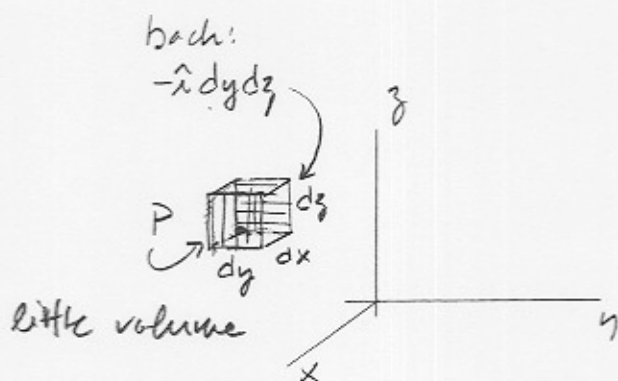 back:
-î dydz
z
dz
P
dx
dy
little volume
y
x